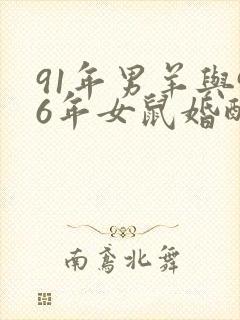 91年男羊與
6年女鼠婚
南鳶北舞